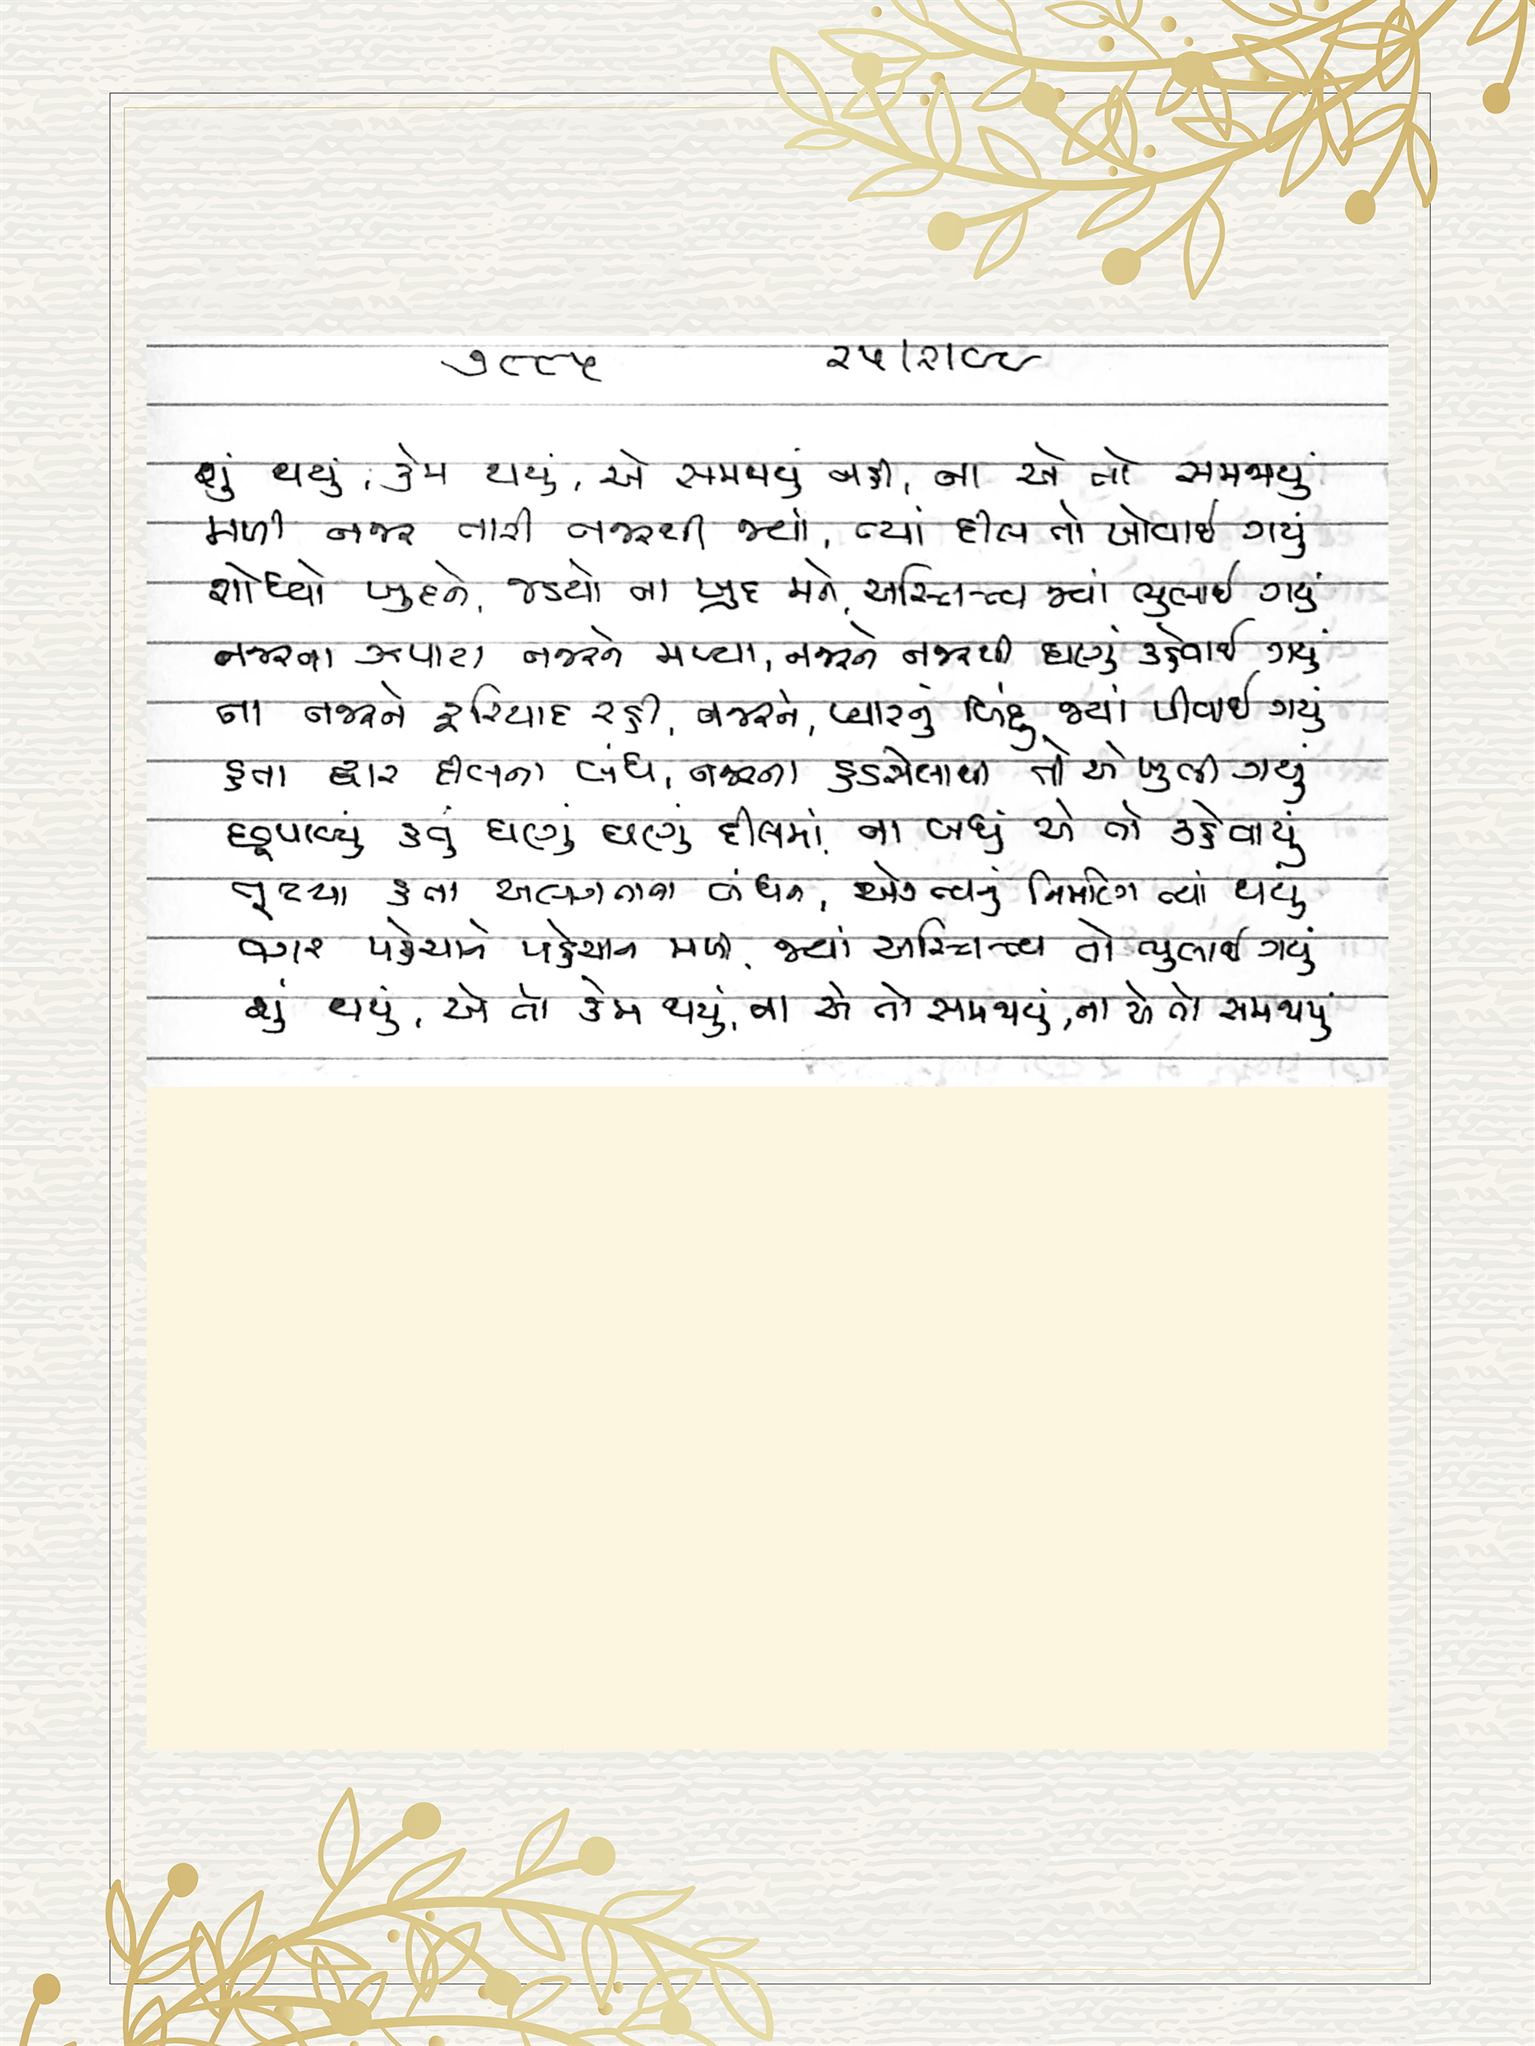 ૭૮૮૫ ૨૫/૨/૯૯
શું થયું, કેમ થયું, એ સમજાયું નહી, ના એ તો સમજાયું
મળી નજર તારી નજરથી જ્યાં, ત્યાં દીલ તો ખોવાઈ ગયું
શોધ્યો ખુદને, જડયો ના ખુદ મને, અસ્તિત્વ જ્યાં ભુલાઈ ગયું
નજરના ઝપાટા નજરને મળ્યા, નજરને નજરથી ઘણું કહેવાઈ ગયું
ના નજરને ફરિયાદ રહી, નજરને, પ્યારનું બિંદુ જ્યાં પીવાઈ ગયું
હતા દ્વાર દીલના બંધ, નજરના હડસેલાથી તો એ ખુલી ગયું
છૂપાવ્યું હતું ઘણું ઘણું દીલમાં, ના બધું એ તો કહેવાયું
તૂટયા હતા અલગતાના બંધન, એકત્વનું નિર્માણ ત્યાં થયું
વગર પહેચાને પહેચાન મળી, જ્યાં અસ્તિત્વ તો ભુલાઈ ગયું
શું થયું, એ તો કેમ થયું, ના એ તો સમજાયું, ના એ તો સમજાયું